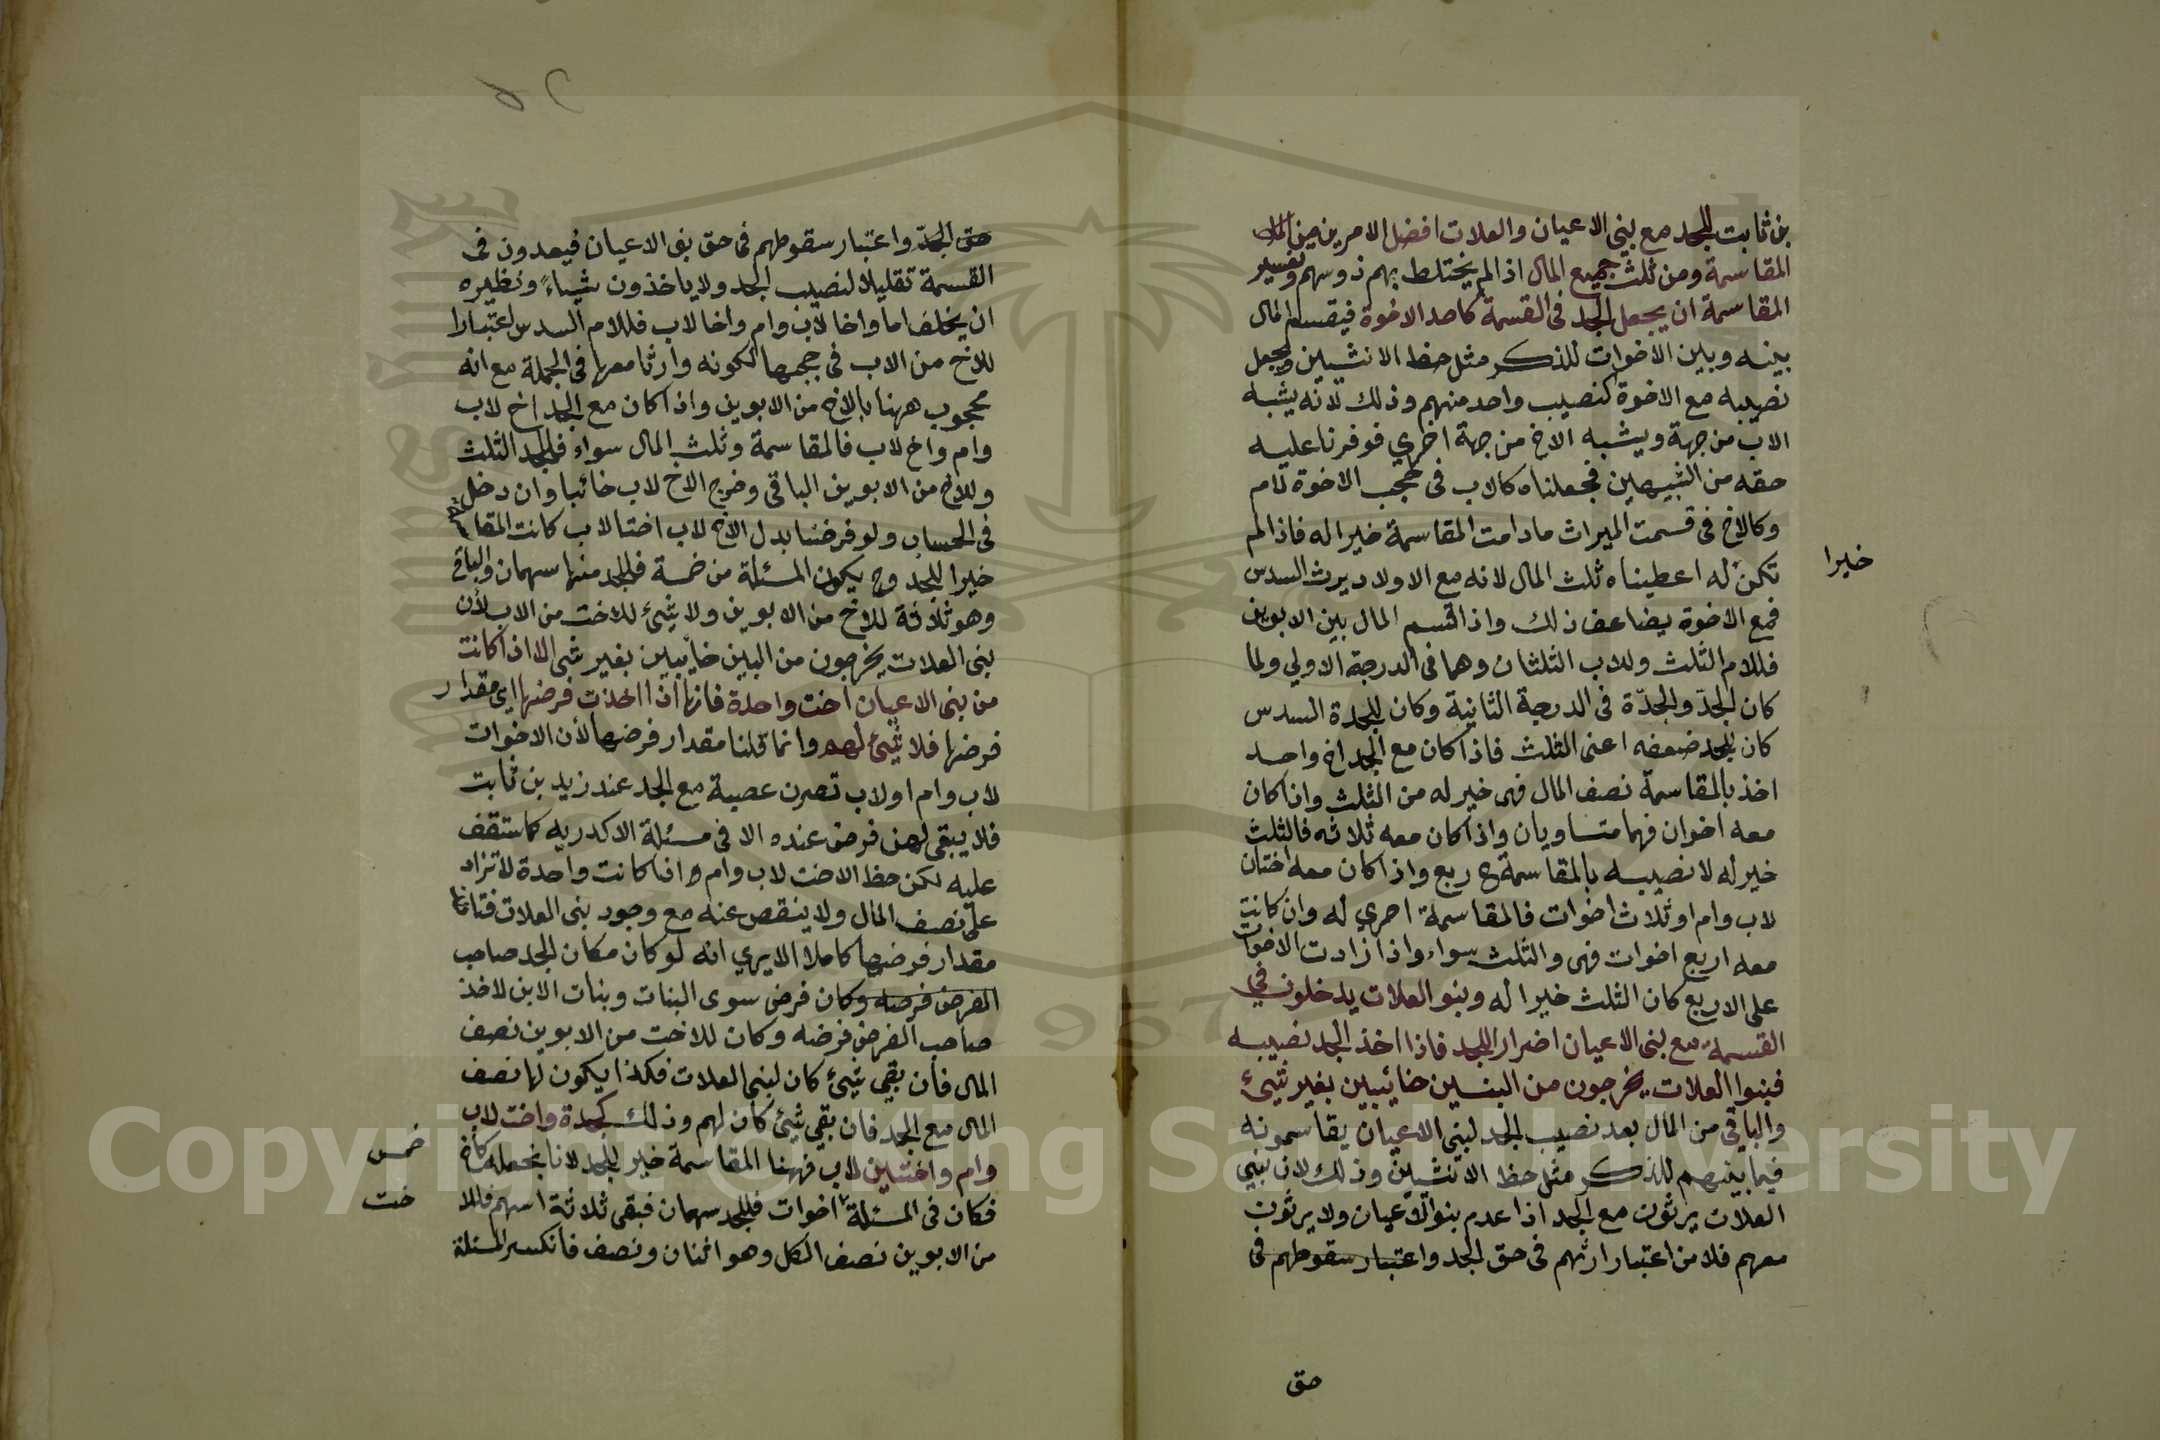 بن ثابت للجد مع بني الاعيان والعلات افضل الامرين من
المقاسمة ومن ثلث جميع المال اذا لم يختلط بهم ذو سهم وتفسير
المقاسمة ان يجعل الجد في القسمة كاحد الاخوة فيقسم المال
بينه وبين الاخوات للذكر مثل حظ الانثيين ويجعل
نصيبه مع الاخوة كنصيب واحد منهم وذلك لانه يشبه
الاب من جهة ويشبه الاخ من جهة اخرى فوفرنا عليه
حقه من الشبهين فجعلناه كالاب في حجب الاخوة لام
وكالاخ في قسمت الميراث مادامت المقاسمة خيرا له فاذا لم
تكن له اعطيناه ثلث المال لانه مع الاولاد يرث السدس
خيرا
فمع الاخوة يضاعف ذلك واذا قسم المال بين الابوين
فللام الثلث وللاب الثلثان وهما في الدرجة الاولي ولما
كان الجدّ والجدّة في الدرجة الثانية وكان للجدة السدس
كان للجد ضعفه اعنى الثلث فاذا كان مع الجد اخ واحد
اخذ بالمقاسمة نصف المال فهى خير له من الثلث وان كان
معه اخوان فهما متساويان واذا كان معه ثلاثه فالثلث
خير له لا نصيبه بالمقاسمة ح ربع واذا كان معه اختان
لاب وام او ثلاث اخوات فالمقاسمة احرى له وان كانت
معه اربع اخوات فهى والثلث سواء واذا زادت الاخوات
على الاربع كان الثلث خيرا له وبنو العلات يدخلون في
القسمة مع بنى الاعيان اضرارا للجد فاذا اخذ الجد نصيبه
فبنوا العلات يخرجون من البين خائبين بغير شيئ
والباقي من المال بعد نصيب الجد لبنى الاعيان يقاسمونه
فيما بينهم للذكر مثل حظ الانثيين وذلك لان بني
العلات يرثون مع الجد اذا عدم بنو الاعيان ولا يرثون
معهم فلا من اعتبار ارثهم في حق الجد واعتبار سقوطهم في
حق
حق الجدّ واعتبار سقوطهم في حق بنى الاعيان فيعدون في
القسمة تقليلا لنصيب الجد ولا ياخذون شيأ ونظيره
ان يخلف اما واخا لاب وام واخا لاب فللام السدس اعتبارا
للاخ من الاب في حجبها لكونه وارثا معها في الجملة مع انه
محجوب ههنا بالاخ من الابوين واذا كان مع الجد اخ لاب
وام واخ لاب فالمقاسمة وثلث المال سواء فللجد الثلث
وللاخ من الابوين الباقي وخرج الاخ لاب خائبا وان دخل
في الحساب ولو فرضنا بدل الاخ لاب اختا لاب كانت المقاسمة
خيرا للجد وح يكون المسئلة من خمسة فللجد منها سهمان والباقي
وهو ثلاثة للاخ من الابوين ولا شيئ للاخت من الاب لأن
بنى العلات يخرجون من البين خايبين بغير شى الا اذا كانت
من بنى الاعيان اخت واحدة فانها اذا اخذت فرضها اي مقدار
فرضها فلا شيئ لهم وانما قلنا مقدار فرضها لأن الاخوات
لاب وام او لاب تصرن عصبة مع الجد عند زيد بن ثابت
فلا يبقى لهن فرض عنده الا في مسئلة الاكدريه كما ستقف
عليه لكن حظ الاخت لاب وام اذا كانت واحدة لا تزاد
على نصف المال ولا ينقص عنه مع وجود بنى العلات
مقدار فرضها كاملا الا يرى انه لو كان مكان الجد صاحب
الفرض فرضه وكان فرض سوى البنات وبنات الابن لاخذ
صاحب الفرض فرضه وكان للاخت من الابوين نصف
المال فان بقي شيئ كان لبنى العلات فكذا يكون لها نصف
المال مع الجد فان بقى شيئ كان لهم وذلك كجدة واخت لاب
وام واختين لاب فههنا المقاسمة خير للجد لانا نجعله كاخ
خمس
فكان في المسئلة اخوات فللجد سهمان فبقى ثلاثة اسهم فللا
خت
من الابوين نصف الكل وهو اثنان ونصف فانكسر المسئلة